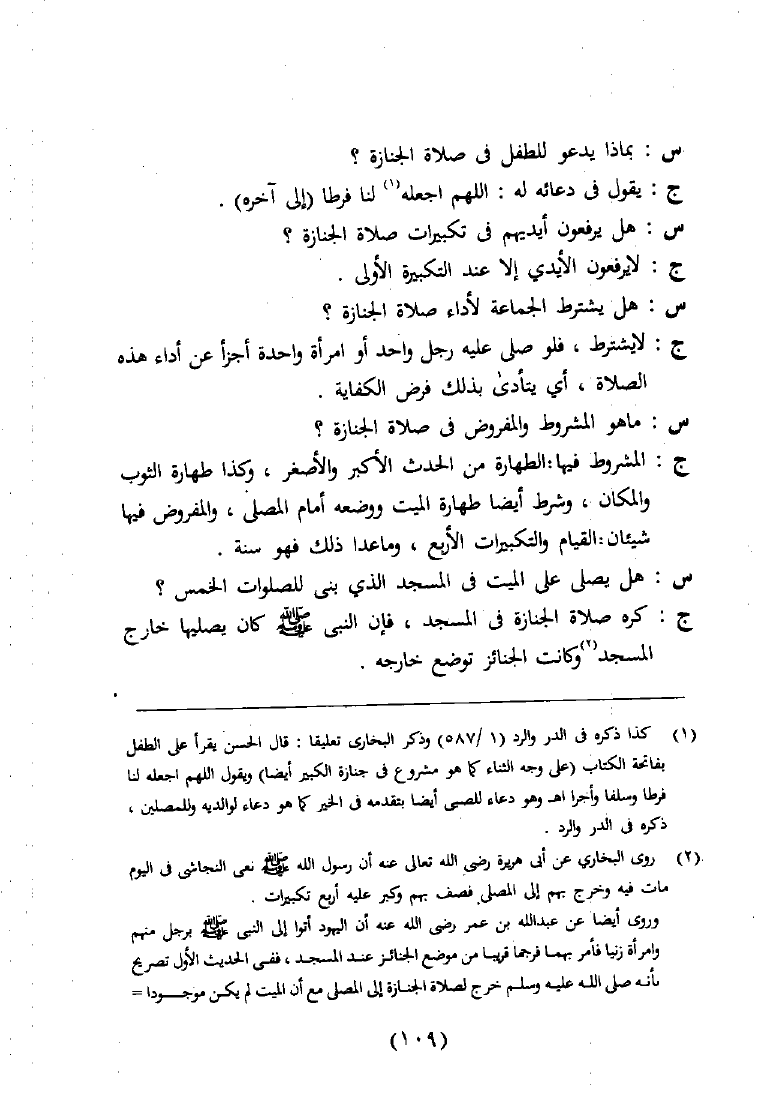 س : بماذا يدعو للطفل فى صلاة الجنازة ؟
ج : يقول فى دعائه له : اللهم اجعله(١) لنا فرطا (إلى آخره) .
س : هل يرفعون أيديهم فى تكبيرات صلاة الجنازة ؟
ج : لايرفعون الأيدي إلا عند التكبيرة الأولى .
س : هل يشترط الجماعة لأداء صلاة الجنازة ؟
ج : لايشترط ، فلو صلى عليه رجل واحد أو امرأة واحدة أجزأ عن أداء هذه
الصلاة ، أي يتأدىٰ بذلك فرض الكفاية .
س : ماهو المشروط والمفروض فى صلاة الجنازة ؟
ج : المشروط فيها:الطهارة من الحدث الأكبر والأصغر ، وكذا طهارة الثوب
والمكان ، وشرط أيضا طهارة الميت ووضعه أمام المصلى ، والمفروض فيها
شيئان:القيام والتكبيرات الأربع ، وماعدا ذلك فهو سنة .
س : هل يصلى على الميت فى المسجد الذي بنى للصلوات الخمس ؟
ج : كره صلاة الجنازة فى المسجد ، فإن النبى ﷺ كان يصليها خارج
المسجد(٢)وكانت الجنائز توضع خارجه .
(١) كذا ذكره فى الدر والرد (١/ ٥٨٧) وذكر البخارى تعليقا : قال الحسن يقرأ على الطفل
بفاتحة الكتاب (على وجه الثناء كما هو مشروع فى جنازة الكبير أيضا) ويقول اللهم اجعله لنا
فرطا وسلفا وأجرا اهـ وهو دعاء للصبى أيضا بتقدمه فى الخير كما هو دعاء لوالديه وللمصلين ،
ذكره فى الدر والرد .
(٢) روى البخاري عن أبى هريرة رضى الله تعالى عنه أن رسول الله ﷺ نعى النجاشى فى اليوم
مات فيه وخرج بهم إلى المصلى فصف بهم وكبر عليه أربع تكبيرات .
وروى أيضا عن عبدالله بن عمر رضى الله عنه أن اليهود أتوا إلى النبى ﷺ برجل منهم
وامرأة زنيا فأمر بهما فرجما قريبا من موضع الجنائز عند المسجد ، ففى الحديث الأول تصريح
بأنه صلى الله عليه وسلم خرج لصلاة الجنازة إلى المصلى مع أن الميت لم يكن موجودا =
(١٠٩)